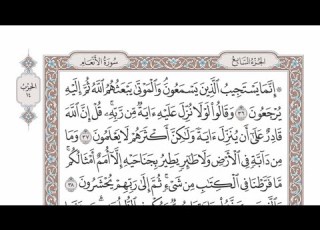 الجزء السابع
سورة الأنعام
الحزب
١٤
إِنَّمَا يَسْتَجِيبُ الَّذِينَ يَسْمَعُونَ وَالْمَوْتَى يَبْعَثُهُمُ اللَّهُ ثُمَّ إِلَيْهِ
يُرْجَعُونَ ٣٦ وَقَالُوا لَوْلَا نُزِّلَ عَلَيْهِ ءَايَةٌ مِّن رَّبِّهِ قُلْ إِنَّ اللَّهَ
قَادِرٌ عَلَى أَن يُنَزِّلَ ءَايَةً وَلَكِنَّ أَكْثَرَهُمْ لَا يَعْلَمُونَ ٣٧ وَمَا
مِن دَابَّةٍ فِي الْأَرْضِ وَلَا طَائِرٍ يَطِيرُ بِجَنَاحَيْهِ إِلَّا أُمَمٌ أَمْثَالُكُم
مَّا فَرَّطْنَا فِي الْكِتَابِ مِن شَيْءٍ ثُمَّ إِلَى رَبِّهِمْ يُحْشَرُونَ ٣٨